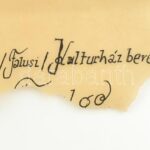 /Falusi/ Kulturház bere
100